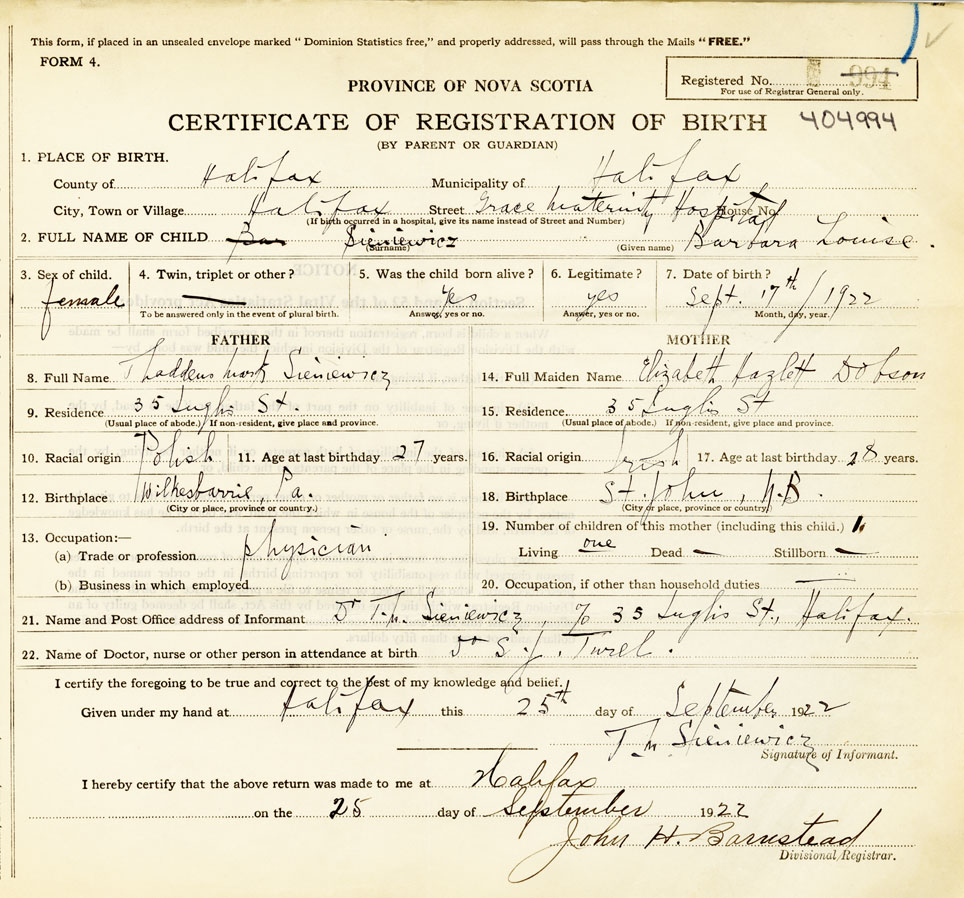 This form, if placed in an unsealed envelope marked "Dominion Statistics free," and properly addressed, will pass through the Mails "FREE."
FORM 4.
Registered No. 994
For use of Registrar General only.
PROVINCE OF NOVA SCOTIA
CERTIFICATE OF REGISTRATION OF BIRTH 404994
(BY PARENT OR GUARDIAN)
1. PLACE OF BIRTH.
County of Halifax Municipality of Halifax
City, Town or Village Halifax Street Grace Maternity Hospital House No.
(If birth occurred in a hospital, give its name instead of Street and Number)
2. FULL NAME OF CHILD Bar Sieniewicz Barbara Louise.
(Surname) (Given name)
3. Sex of child. 4. Twin, triplet or other? 5. Was the child born alive? 6. Legitimate? 7. Date of birth?
female — Yes yes Sept. 17th / 1922
To be answered only in the event of plural birth. Answer, yes or no. Answer, yes or no. Month, day, year.
FATHER MOTHER
8. Full Name Thaddeus Sieniewicz 14. Full Maiden Name Elizabeth Hazlett Dobson
9. Residence 35 Inglis St. 15. Residence. 35 Inglis St
(Usual place of abode.) If non-resident, give place and province. (Usual place of abode.) If non-resident, give place and province.
10. Racial origin Polish 11. Age at last birthday 27 years. 16. Racial origin Irish 17. Age at last birthday 28 years.
12. Birthplace Wilkesbarrie, Pa. 18. Birthplace St. John, N.B.
(City or place, province or country.) (City or place, province or country)
13. Occupation:— 19. Number of children of this mother (including this child.) 1.
(a) Trade or profession physician Living one Dead — Stillborn —
(b) Business in which employed 20. Occupation, if other than household duties —
21. Name and Post Office address of Informant Dr T.M. Sieniewicz, % 35 Inglis St., Halifax.
22. Name of Doctor, nurse or other person in attendance at birth Dr S. J. Turel.
I certify the foregoing to be true and correct to the best of my knowledge and belief.
Given under my hand at Halifax this 25th day of September 1922
T M Sieniewicz
Signature of Informant.
I hereby certify that the above return was made to me at Halifax
on the 25 day of September 1922
John H. Barnstead
Divisional Registrar.